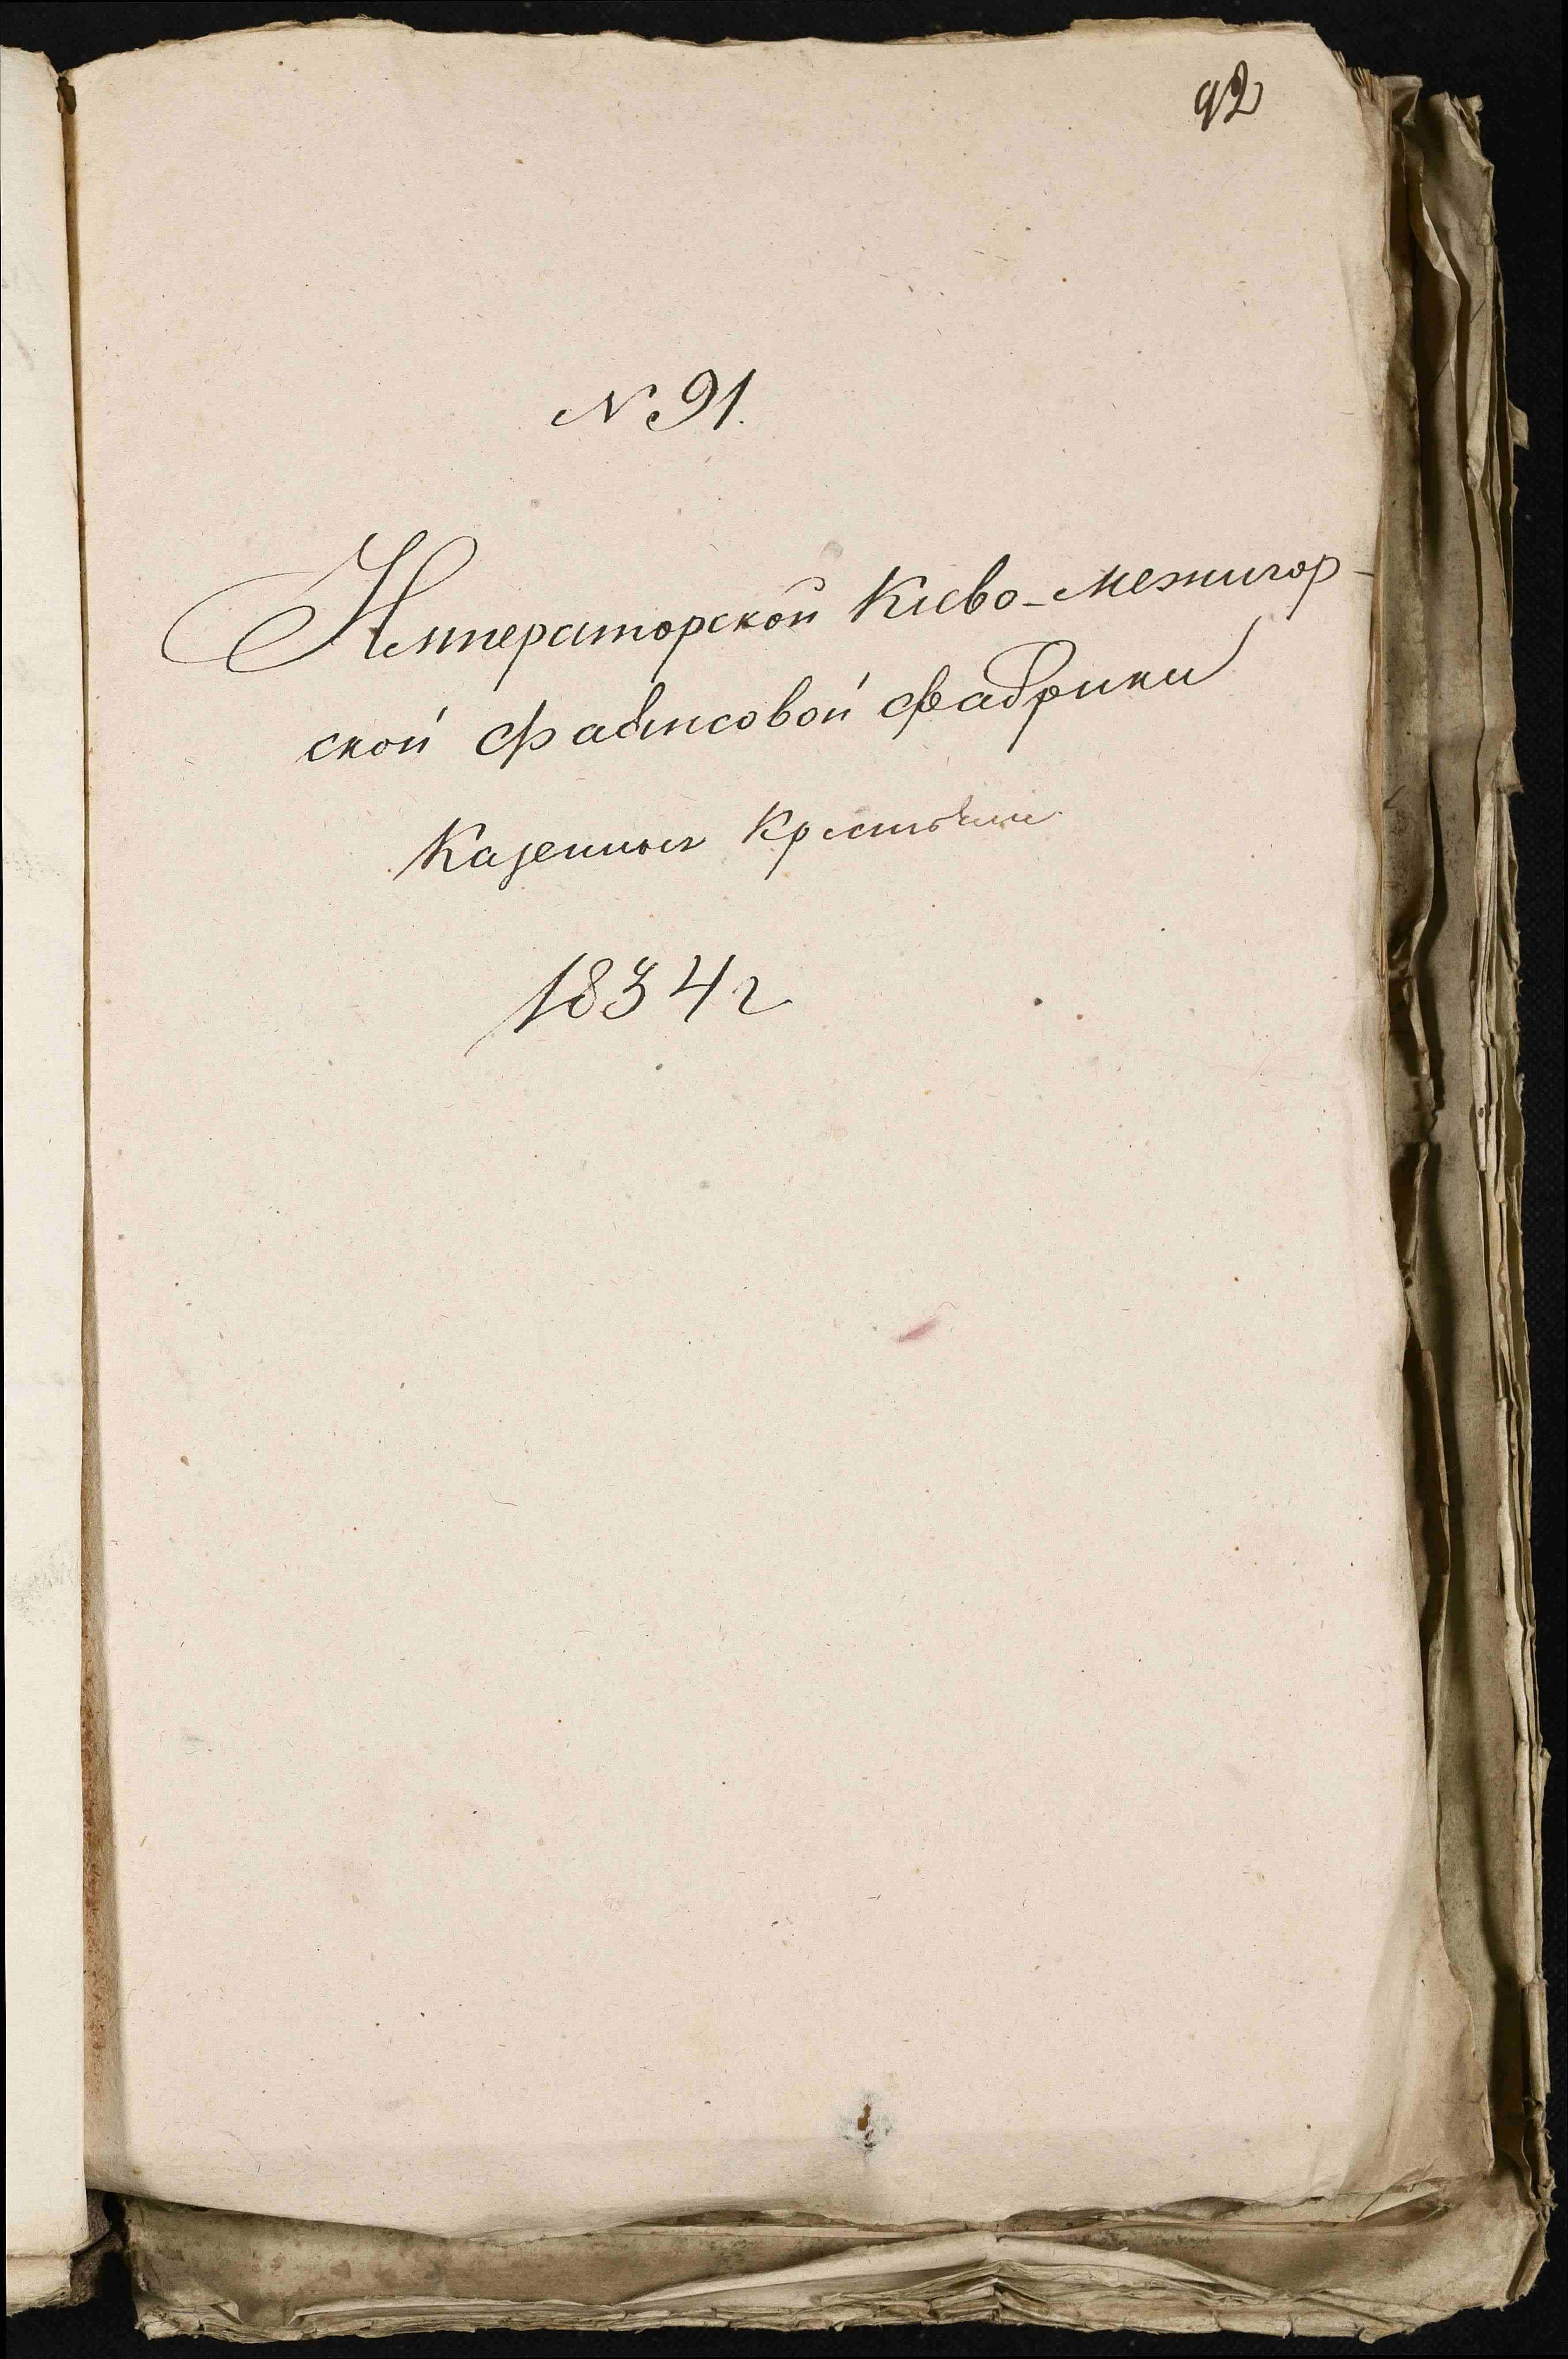 92
N 91.
Императорской Киево-Межигор-
ской Фаянсовой фабрики
Казенных Крестьян
1834 г